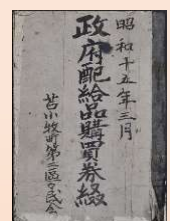 昭和十五年三月
政府配給品購買券綴
苫小牧町第二區三民会